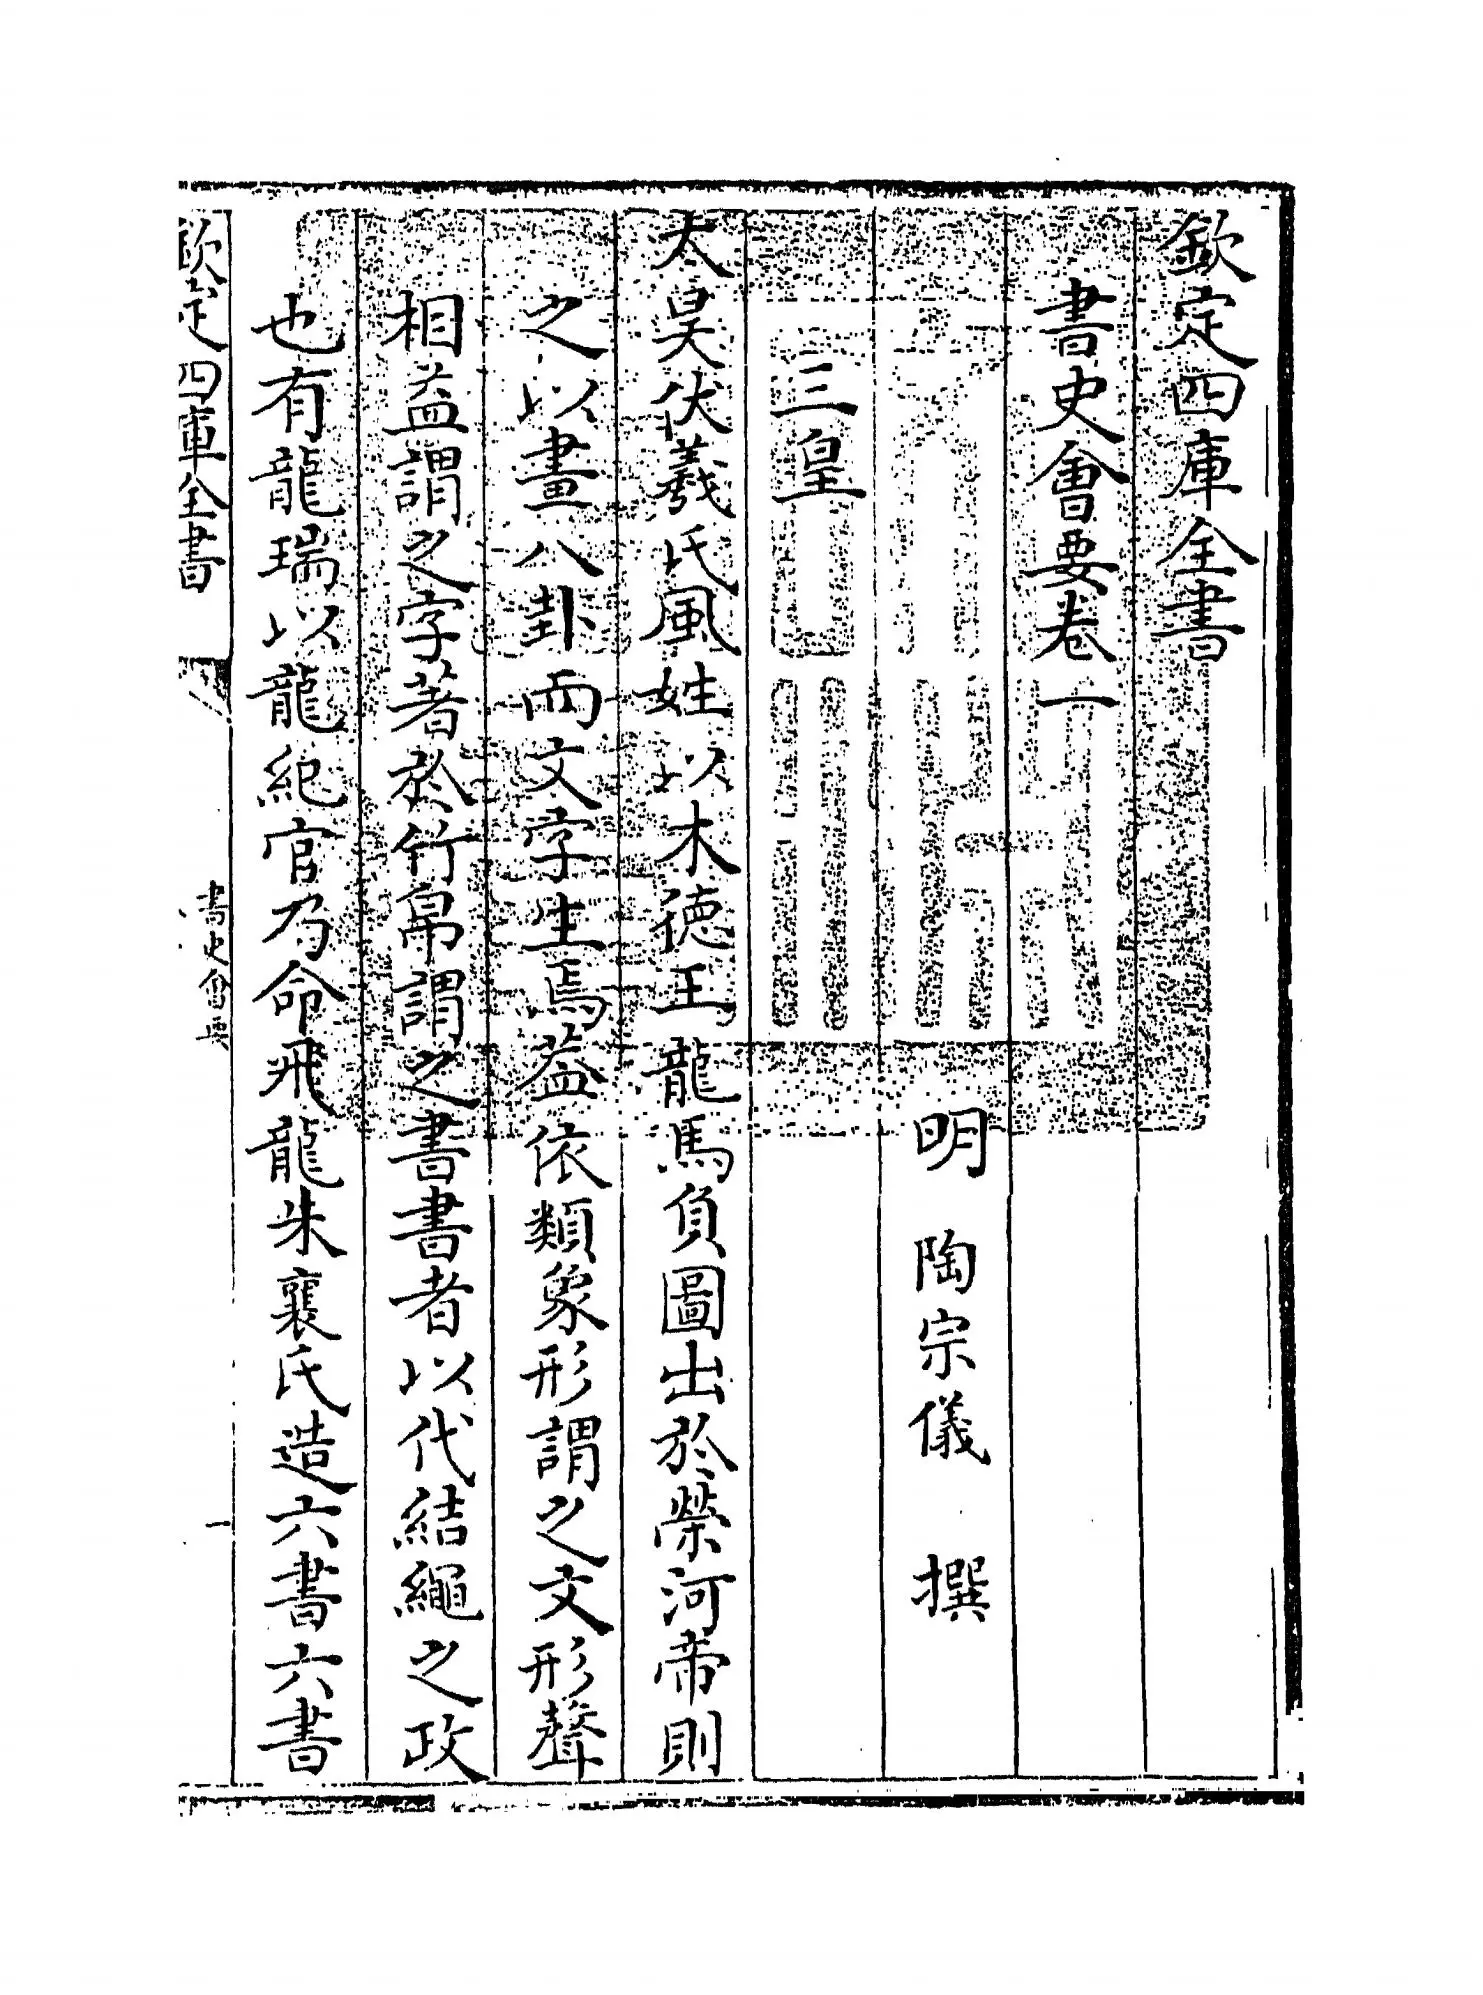 欽定四庫全書
書史會要卷一
明 陶宗儀 撰
三皇
太昊伏羲氏風姓以木德王龍馬負圖出於滎河帝則
之以畫八卦而文字生焉葢依類象形謂之文形聲
相益謂之字著於竹帛謂之書書者以代結繩之政
也有龍瑞以龍紀官乃命飛龍朱襄氏造六書六書
欽定四庫全書
書史會要
一